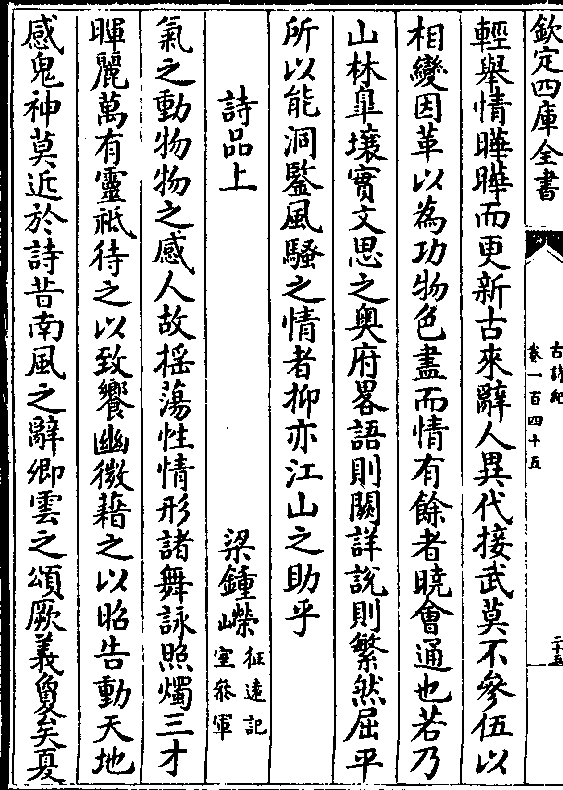 欽定四庫全書
古詩紀
卷一百四十五
二十五
輕舉情曄曄而更新古來辭人異代接武莫不參伍以
相變因革以為功物色盡而情有餘者曉會通也若乃
山林臯壤實文思之奧府畧語則闕詳說則繁然屈平
所以能洞監風騷之情者抑亦江山之助乎
詩品上
梁鍾嶸
征遠記
室參軍
氣之動物物之感人故揺蕩性情形諸舞詠照燭三才
暉麗萬有靈祇待之以致饗幽微藉之以昭告動天地
感鬼神莫近於詩昔南風之辭卿雲之頌厥義夐矣夏